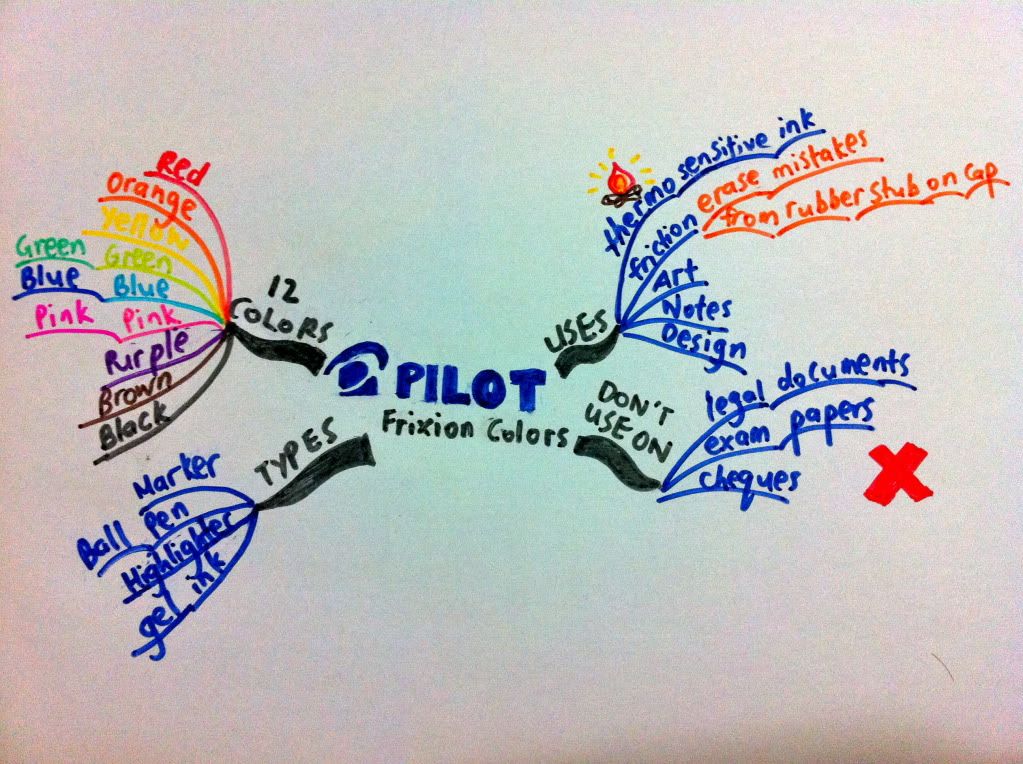 PILOT
Frixion Colors
12
COLORS
Red
Orange
Yellow
Green Green
Blue Blue
Pink Pink
Purple
Brown
Black
TYPES
Marker
Ball Pen
Highlighter
gel ink
USES
thermo sensitive ink
friction erase mistakes
from rubber stub on cap
Art
Notes
Design
DON'T
USE ON
legal documents
exam papers
cheques